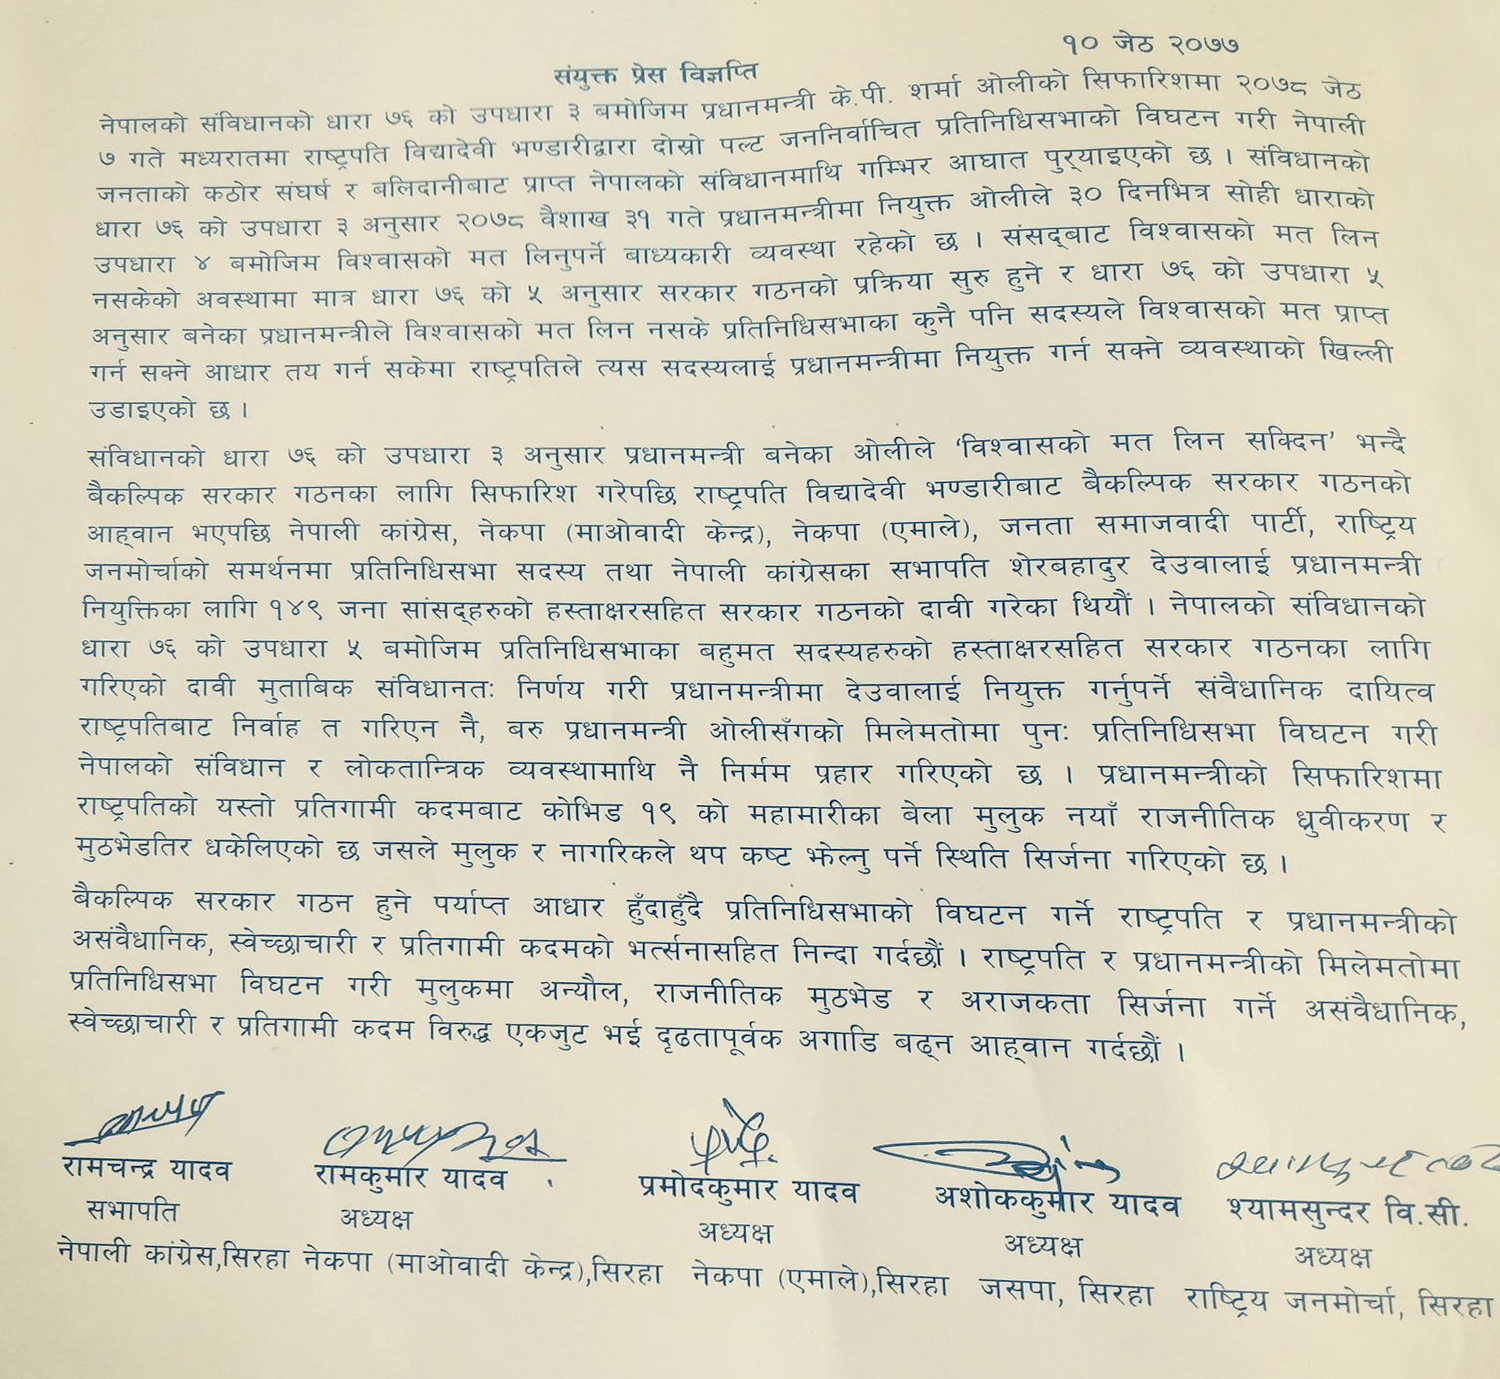 १० जेठ २०७७
संयुक्त प्रेस विज्ञप्ति
नेपालको संविधानको धारा ७६ को उपधारा ३ बमोजिम प्रधानमन्त्री के.पी. शर्मा ओलीको सिफारिशमा २०७८ जेठ
७ गते मध्यरातमा राष्ट्रपति विद्यादेवी भण्डारीद्वारा दोस्रो पल्ट जननिर्वाचित प्रतिनिधिसभाको विघटन गरी नेपाली
जनताको कठोर संघर्ष र बलिदानीबाट प्राप्त नेपालको संविधानमाथि गम्भिर आघात पुर्‍याइएको छ । संविधानको
धारा ७६ को उपधारा ३ अनुसार २०७८ वैशाख ३१ गते प्रधानमन्त्रीमा नियुक्त ओलीले ३० दिनभित्र सोही धाराको
उपधारा ४ बमोजिम विश्वासको मत लिनुपर्ने बाध्यकारी व्यवस्था रहेको छ । संसद्बाट विश्वासको मत लिन
नसकेको अवस्थामा मात्र धारा ७६ को ५ अनुसार सरकार गठनको प्रक्रिया सुरु हुने र धारा ७६ को उपधारा ५
अनुसार बनेका प्रधानमन्त्रीले विश्वासको मत लिन नसके प्रतिनिधिसभाका कुनै पनि सदस्यले विश्वासको मत प्राप्त
गर्न सक्ने आधार तय गर्न सकेमा राष्ट्रपतिले त्यस सदस्यलाई प्रधानमन्त्रीमा नियुक्त गर्न सक्ने व्यवस्थाको खिल्ली
उडाइएको छ ।
संविधानको धारा ७६ को उपधारा ३ अनुसार प्रधानमन्त्री बनेका ओलीले ‘विश्वासको मत लिन सक्दिन’ भन्दै
बैकल्पिक सरकार गठनका लागि सिफारिश गरेपछि राष्ट्रपति विद्यादेवी भण्डारीबाट बैकल्पिक सरकार गठनको
आह्वान भएपछि नेपाली कांग्रेस, नेकपा (माओवादी केन्द्र), नेकपा (एमाले), जनता समाजवादी पार्टी, राष्ट्रिय
जनमोर्चाको समर्थनमा प्रतिनिधिसभा सदस्य तथा नेपाली कांग्रेसका सभापति शेरबहादुर देउवालाई प्रधानमन्त्री
नियुक्तिका लागि १४९ जना सांसद्हरुको हस्ताक्षरसहित सरकार गठनको दावी गरेका थियौं । नेपालको संविधानको
धारा ७६ को उपधारा ५ बमोजिम प्रतिनिधिसभाका बहुमत सदस्यहरुको हस्ताक्षरसहित सरकार गठनका लागि
गरिएको दावी मुताबिक संविधानतः निर्णय गरी प्रधानमन्त्रीमा देउवालाई नियुक्त गर्नुपर्ने संवैधानिक दायित्व
राष्ट्रपतिबाट निर्वाह त गरिएन नै, बरु प्रधानमन्त्री ओलीसँगको मिलेमतोमा पुनः प्रतिनिधिसभा विघटन गरी
नेपालको संविधान र लोकतान्त्रिक व्यवस्थामाथि नै निर्मम प्रहार गरिएको छ । प्रधानमन्त्रीको सिफारिशमा
राष्ट्रपतिको यस्तो प्रतिगामी कदमबाट कोभिड १९ को महामारीका बेला मुलुक नयाँ राजनीतिक ध्रुवीकरण र
मुठभेडतिर धकेलिएको छ जसले मुलुक र नागरिकले थप कष्ट झेल्नु पर्ने स्थिति सिर्जना गरिएको छ ।
बैकल्पिक सरकार गठन हुने पर्याप्त आधार हुँदाहुँदै प्रतिनिधिसभाको विघटन गर्ने राष्ट्रपति र प्रधानमन्त्रीको
असंवैधानिक, स्वेच्छाचारी र प्रतिगामी कदमको भर्त्सनासहित निन्दा गर्दछौं । राष्ट्रपति र प्रधानमन्त्रीको मिलेमतोमा
प्रतिनिधिसभा विघटन गरी मुलुकमा अन्यौल, राजनीतिक मुठभेड र अराजकता सिर्जना गर्ने असंवैधानिक,
स्वेच्छाचारी र प्रतिगामी कदम विरुद्ध एकजुट भई दृढतापूर्वक अगाडि बढ्न आह्वान गर्दछौं ।
रामचन्द्र यादव रामकुमार यादव प्रमोदकुमार यादव अशोककुमार यादव श्यामसुन्दर वि.सी.
सभापति अध्यक्ष अध्यक्ष अध्यक्ष अध्यक्ष
नेपाली कांग्रेस,सिरहा नेकपा (माओवादी केन्द्र),सिरहा नेकपा (एमाले),सिरहा जसपा, सिरहा राष्ट्रिय जनमोर्चा, सिरहा